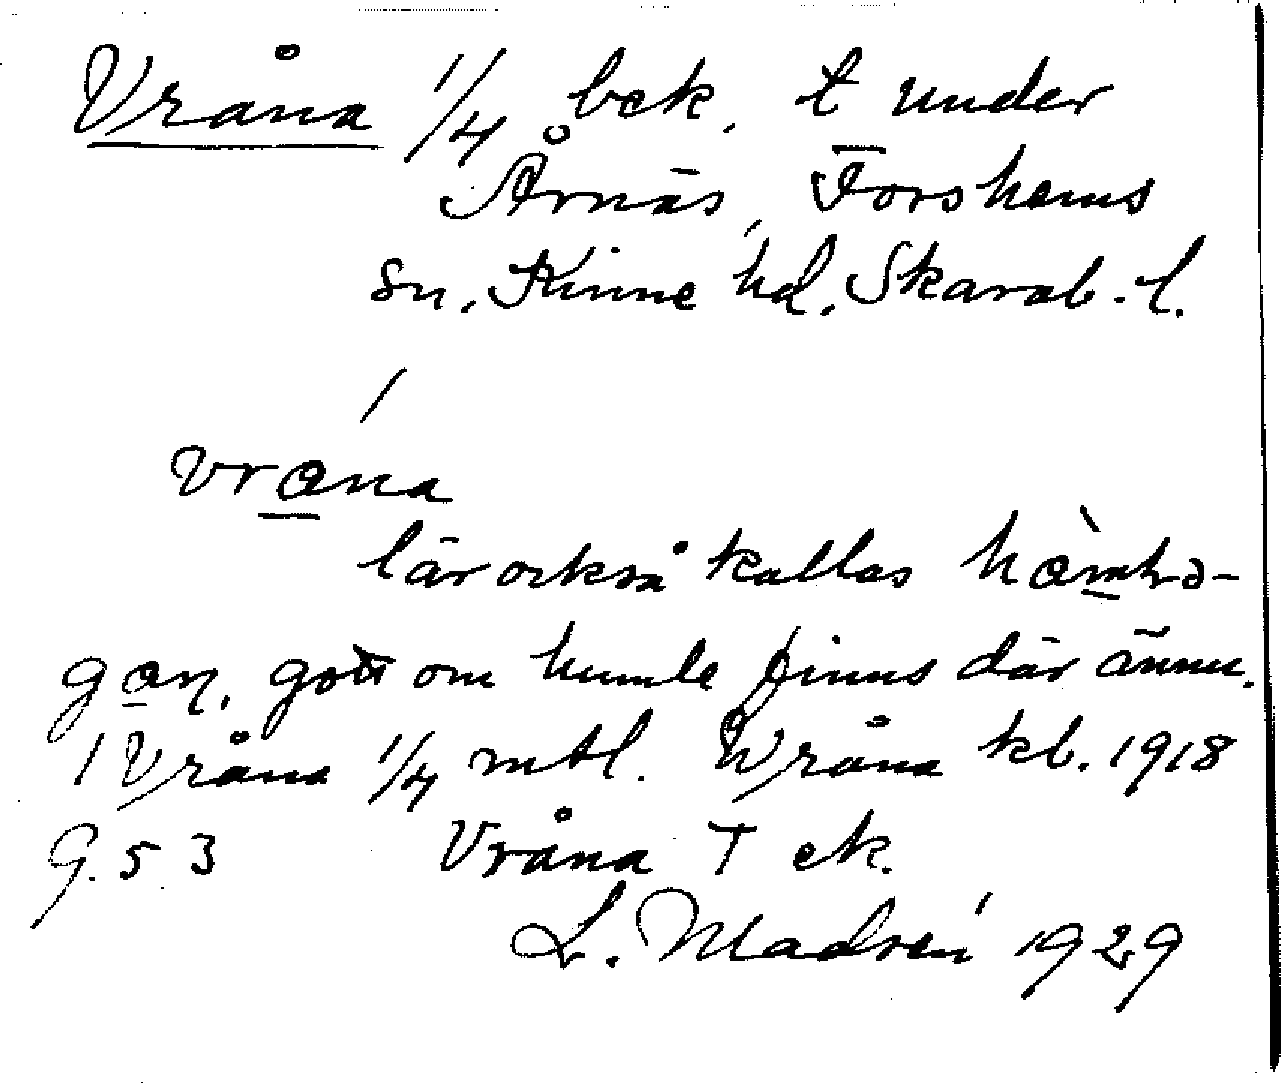 Vråna 1/4 bek. t under
Årnäs, Forshems
sn. Kinne hd. Skarab. l.
vråna
lär också kallas
gott om humle finns där ännu.
1 Vråna 1/4 mtl. Wråna kb. 1918
G. 5 3 Vråna T ek.
L. Madrén 1929